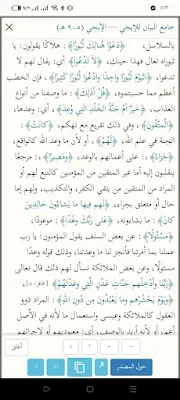 جامع البيان للإيجي — الإيجي (٩٠٥ هـ)
بالسلاسل، ﴿دَعَوْا هُنَالِكَ ثُبُورًا﴾: هلاكًا يقولون: يا
ثبوراه تعال فهذا حينك، ﴿لَا تَدْعُوا﴾ أي: يقال لهم لا
تدعوا، ﴿الْيَوْمَ ثُبُورًا وَاحِدًا وَادْعُوا ثُبُورًا كَثِيرًا﴾، فإن الخطب
أعظم مما حسبتموه، ﴿قُلْ أَذَلِكَ﴾: ما وصفنا من أنواع
العذاب، ﴿خَيْرٌ أَمْ جَنَّةُ الْخُلْدِ الَّتِي وُعِدَ﴾، أي: وعدها،
﴿الْمُتَّقُونَ﴾، وفي ذلك تقريع مع تهكم، ﴿كَانَتْ﴾:
الجنة في علم الله، ﴿لَهُمْ﴾، أو لأن ما وعد الله كالواقع،
﴿جَزَاءً﴾: على أعمالهم بالوعد، ﴿وَمَصِيرًا﴾،: مرجعًا
ينقلبون إليه أما غير المتقين من المؤمنين كالتبع لهم أو
المراد من المتقين من يتقي الكفر، والتكذيب، ولهم إما
حال أو متعلق بجزاء، ﴿لَهُمْ فِيهَا مَا يَشَاءُونَ خَالِدِينَ
كَانَ﴾: ما يشاءونه، ﴿عَلَى رَبِّكَ وَعْدًا﴾: موعودًا،
﴿مَسْئُولًا﴾: عن بعض السلف يقول المؤمنون: يا رب
عملنا بما أمرتنا فأنجز لنا ما وعدتنا، وذلك قوله وعدًا
مسئولًا، وعن بعض الملائكة تسأل لهم ذلك قال تعالى
﴿رَبَّنَا وَأَدْخِلْهُمْ جَنَّاتِ عَدْنٍ الَّتِي وَعَدْتَهُمْ﴾ [غافر: ٨]،
﴿وَيَوْمَ يَحْشُرُهُمْ وَمَا يَعْبُدُونَ مِنْ دُونِ اللَّهِ﴾: المراد ذوو
العقول كالملائكة وعيسى واستعمال ما لأنه في الأصل
أعم، أو لأنه أريد بالوصف، أي: معبوديهم أو لإجرائهم
أغلق
حول المصدر